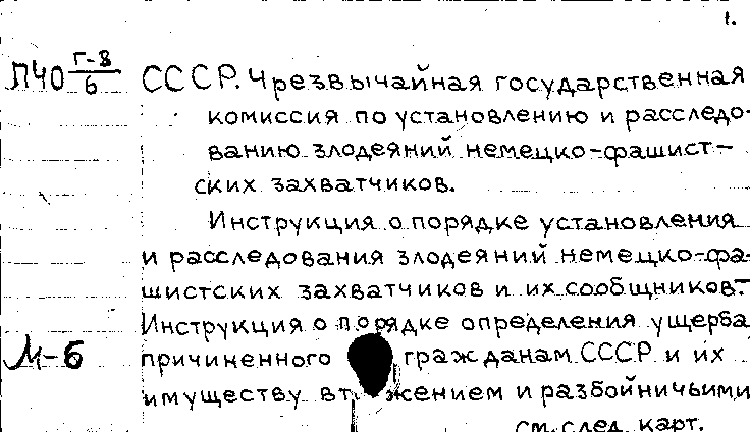 1.
ЛЧО Г-8/6 СССР. Чрезвычайная государственная
комиссия по установлению и расследо-
ванию злодеяний немецко-фашист-
ских захватчиков.
Инструкция о порядке установления
и расследования злодеяний немецко-фа-
шистских захватчиков и их сообщников.
Инструкция о порядке определения ущерба
М-6 причиненного гражданам СССР и их
имуществу и разбойничьими
см. след. карт.